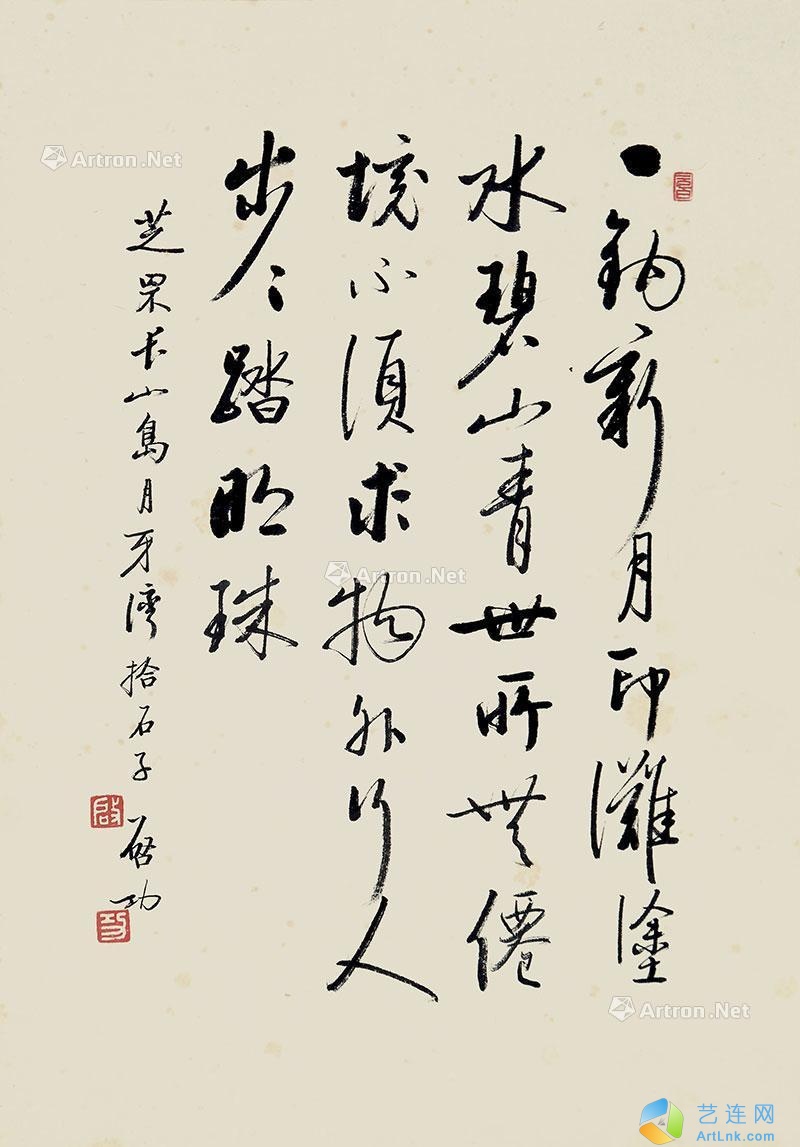 一鈎新月印灘塗
水碧山青世所無僊
境不須求物外行人
步〻踏明珠
芝罘長山島月牙灣拾石子 啓功
啟
功
Artron.Net
Artron.Net
Artron.Net
艺连网
ArtLnk.com